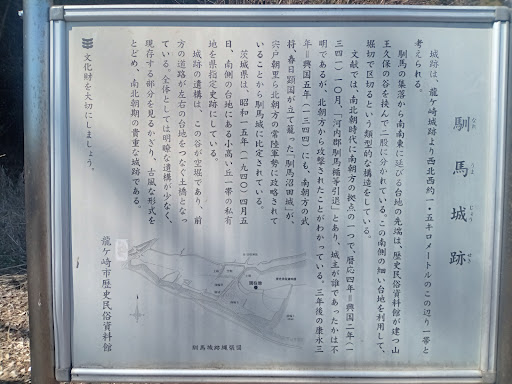 馴馬城跡
なれ うま じょう せき
城跡は、龍ケ崎城跡より西北西約一・五キロメートルのこの辺り一帯と
考えられる。
馴馬の集落から南南東に延びる台地の先端は、歴史民俗資料館が建つ山
王久保の谷を挟んで二股に分かれている。この南側の細い台地を利用して、
堀切で区切るという類型的な構造をしている。
文献では、南北朝時代に南朝方の拠点の一つで、暦応四年=興国二年(一
三四一)一〇月、「河内郡馴馬楯等引退」とあり、城主が誰であったかは不
明であるが、北朝方から攻撃されたことがわかっている。三年後の康永三
年=興国五年(一三四四)にも、南朝方の武
将、春日顕国が立て籠った「馴馬沼田城」が、
宍戸朝里ら北朝方の常陸軍勢に攻略されて
いることから馴馬城に比定されている。
茨城県は、昭和一五年(一九四〇)四月五
日、南側の台地にある小高い丘一帯の私有
地を県指定史跡にしている。
城跡の遺構は、この谷が空堀であり、前
方の道路が左右の台地をつなぐ土橋となっ
ている。全体としては明瞭な遺構が少なく、
現存する部分を見るかぎり、古風な形式を
とどめ、南北朝期の貴重な城跡である。
文化財を大切にしましょう。
龍ケ崎市歴史民俗資料館
馴馬城跡縄張図